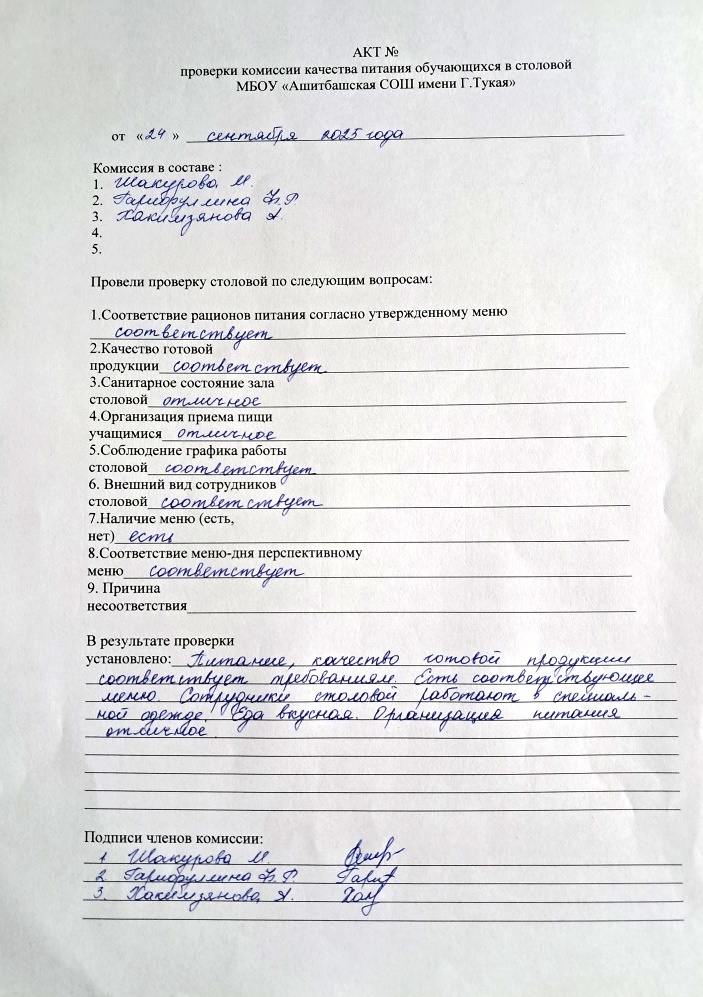 АКТ №
проверки комиссии качества питания обучающихся в столовой
МБОУ «Ашитбашская СОШ имени Г.Тукая»
от «24 » сентября 2025 года
Комиссия в составе :
1. Шакурова М.
2. Гарифуллина Ф.Р
3. Хакимзянова А.
4.
5.
Провели проверку столовой по следующим вопросам:
1.Соответствие рационов питания согласно утвержденному меню
соответствует
2.Качество готовой
продукции соответствует
3.Санитарное состояние зала
столовой отличное
4.Организация приема пищи
учащимися отличное
5.Соблюдение графика работы
столовой соответствует
6. Внешний вид сотрудников
столовой соответствует
7.Наличие меню (есть,
нет) есть
8.Соответствие меню-дня перспективному
меню соответствует
9. Причина
несоответствия
В результате проверки
установлено: Питание, качество готовой продукции
соответствует требованиям. Есть соответствующее
меню. Сотрудники столовой работают в специаль-
ной одежде. Еда вкусная. Организация питания
отличное
Подписи членов комиссии:
1 Шакурова М.
2 Гарифуллина Ф.Р. Гариф
3. Хакимзянова А. Хак